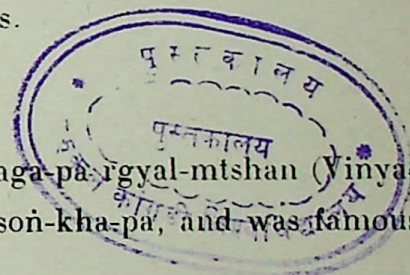 s.
पुस्तकालय
पुस्तकालय
aga-pa-rgyal-mtshan (Vinya-
soṅ-kha-pa, and was famous